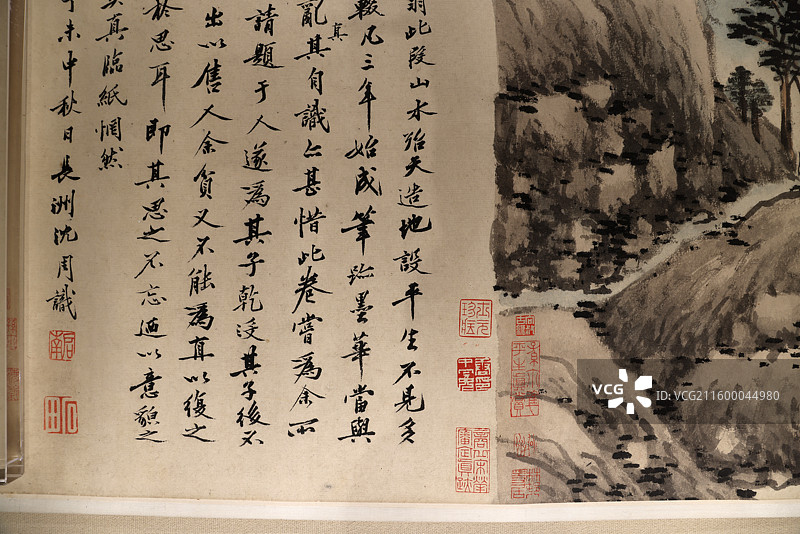 翁此段山水殆天造地設平生不見多
輟凡三年始成筆跡墨華當與
亂真其自識亦甚惜此卷嘗為余所
請題于人遂為其子乾沒其子後不
出以售人余貧又不能為直以復之
於思耳即其思之不忘迺以意貌之
真臨紙惘然
未中秋日長洲沈周識
啟南
VCG
VCG211600044980